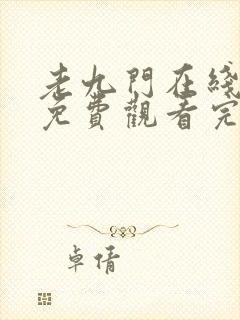 老九門在綫
免費觀看完
卓倩